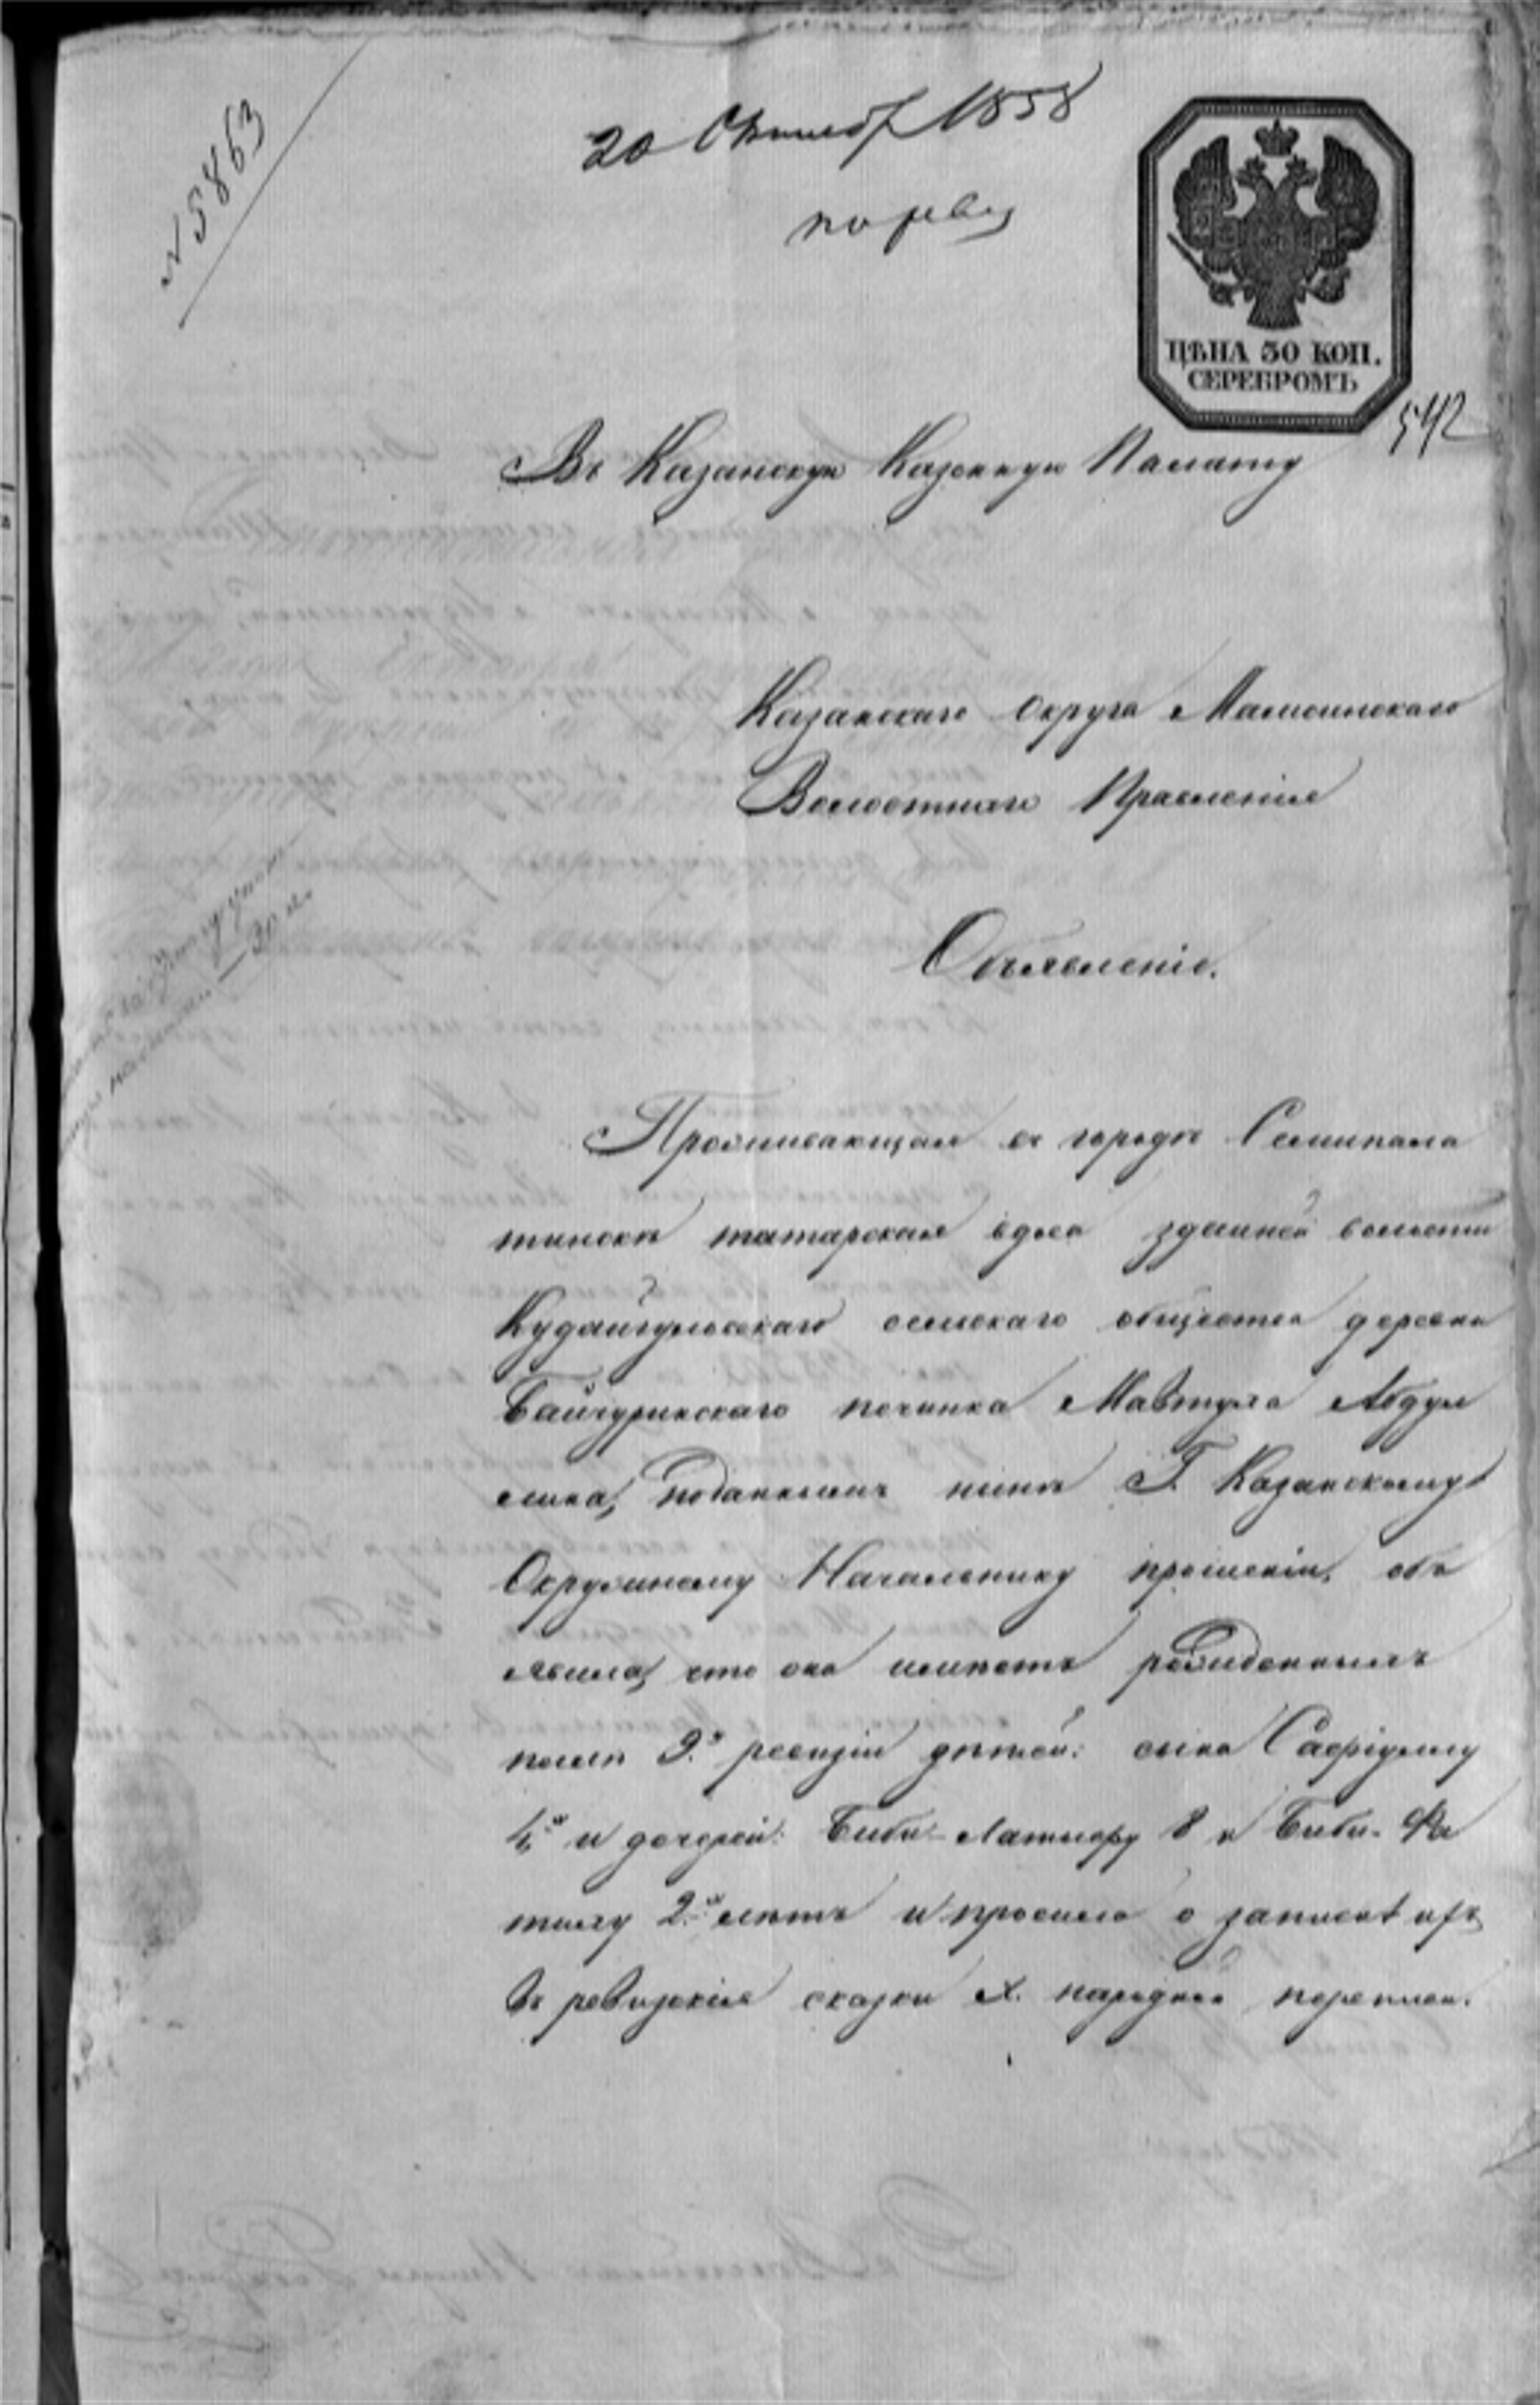 N 5863
20 Октября 1858
по рев
ЦѢНА 30 КОП.
СЕРЕБРОМЪ
542
Въ Казанскую Казенную Палату
Казанскаго Округа Мамсинскаго
Волостнаго Правленія
Объявленіе.
Проживающая въ городѣ Семипала
тинскѣ татарская вдова здѣшней волости
Кудашгульскаго сельскаго общества деревни
Байчуринскаго починка Мавтуха Абдул
лина, поданнымъ нынѣ Г. Казанскому
Окружному Начальнику прошеніи, объ
явила, что она имѣетъ рожденныхъ
послѣ 9й ревизіи дѣтей: сына Сафіуллу
4х и дочерей: Биби-Латифу 8 и Биби-Фа
тиму 2х лѣтъ и просила о запискѣ ихъ
въ ревизскія сказки X. народной переписи.